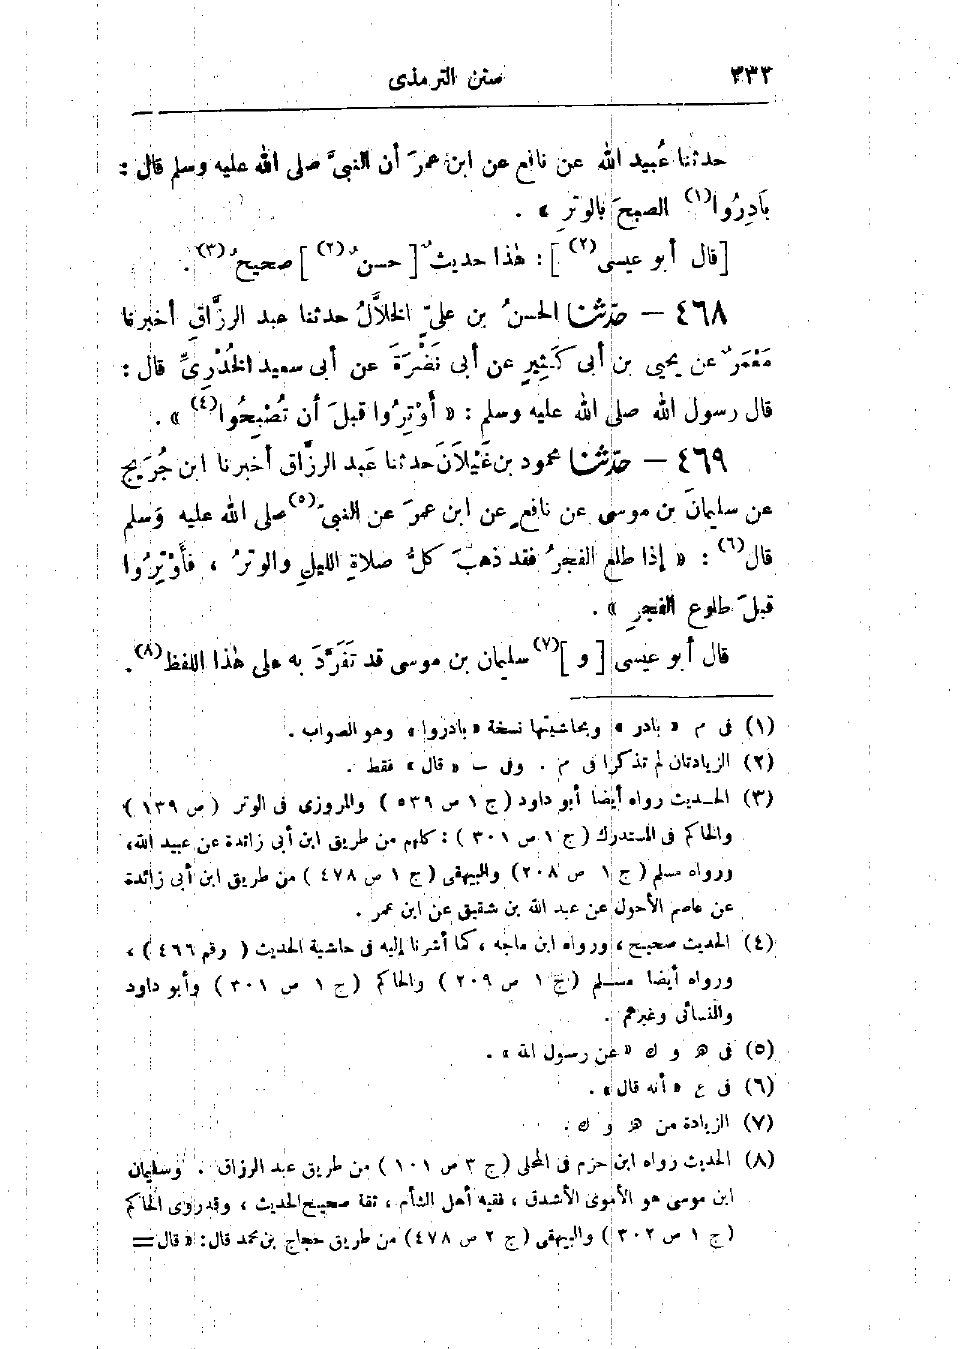 ٣٣٢ سنن الترمذى
حدثنا عُبيد الله عن نافع عن ابن عمرَ أن النبىَّ صلى الله عليه وسلم قال :
بَادِرُوا(١) الصبحَ بالوترِ » .
[قال أبو عيسى(٢)] : هٰذا حديثٌ [حسنٌ(٢)] صحيحٌ(٣) .
٤٦٨ — حدّثنا الحسنُ بن علىٍّ الخلَّالُ حدثنا عبد الرزَّاقِ أخبرنا
مَعْمَرٌ عن يحيى بن أبى كَثِيرٍ عن أبى نَضْرَةَ عن أبى سعيد الخُدْرِىِّ قال :
قال رسول الله صلى الله عليه وسلم : « أَوْتِرُوا قبلَ أن تُصْبِحُوا(٤) » .
٤٦٩ — حدّثنا محمود بن غَيْلَانَ حدثنا عَبد الرزَّاق أخبرنا ابن جُرَيج
عن سليمانَ بن موسى عن نافعٍ عن ابن عمرَ عن النبىِّ(٥) صلى الله عليه وَسلم
قال(٦) : « إذا طلع الفجرُ فقد ذهبَ كلُّ صلاةِ الليلِ والوترُ ، فأَوْتِرُوا
قبلَ طلوع الفجرِ » .
قال أبو عيسى [و](٧) سليمان بن موسى قد تَفَرَّدَ به على هٰذا اللفظ(٨) .
(١) فى م « بادر » وبحاشيتها نسخة « بادروا » وهو الصواب .
(٢) الزيادتان لم تذكرا فى م . وفى ب « قال » فقط .
(٣) الحديث رواه أيضا أبو داود ( ج ١ ص ٥٣٩ ) والمروزى فى الوتر ( ص ١٣٩ )
والحاكم فى المستدرك ( ج ١ ص ٣٠١ ) : كلهم من طريق ابن أبى زائدة عن عبيد الله،
ورواه مسلم ( ج ١ ص ٢٠٨ ) والبيهقى ( ج ١ ص ٤٧٨ ) من طريق ابن أبى زائدة
عن عاصم الأحول عن عبد الله بن شقيق عن ابن عمر .
(٤) الحديث صحيح ، ورواه ابن ماجه ، كما أشرنا إليه فى حاشية الحديث ( رقم ٤٦٦ ) ،
ورواه أيضا مسلم ( ج ١ ص ٢٠٩ ) والحاكم ( ج ١ ص ٣٠١ ) وأبو داود
والنسائى وغيرهم .
(٥) فى ه و ك « عن رسول الله » .
(٦) فى ع « أنه قال » .
(٧) الزيادة من ه و ك .
(٨) الحديث رواه ابن حزم فى المحلى ( ج ٣ ص ١٠١ ) من طريق عبد الرزاق . وسليمان
ابن موسى هو الأموى الأشدق ، فقيه أهل الشأم ، ثقة صحيح الحديث ، وقد روى الحاكم
( ج ١ ص ٣٠٢ ) والبيهقى ( ج ٢ ص ٤٧٨ ) من طريق حجاج بن محمد قال : « قال =